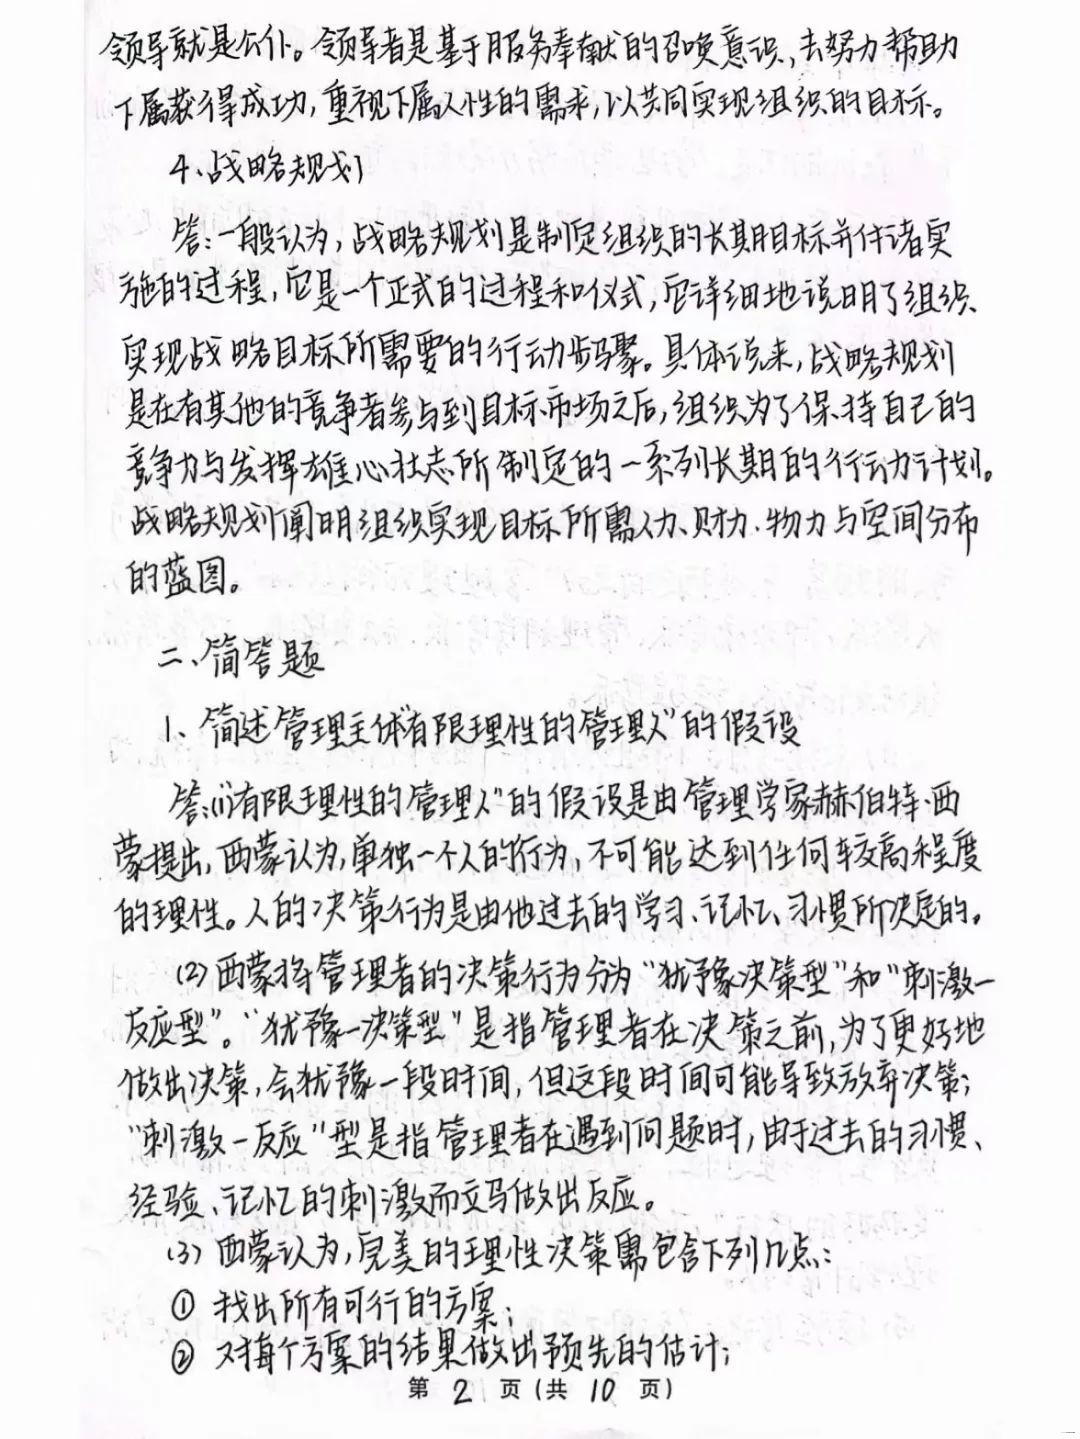 领导就是公仆。领导者是基于服务奉献的召唤意识,去努力帮助
下属获得成功,重视下属人性的需求,以共同实现组织的目标。
4、战略规划
答:一般认为,战略规划是制定组织的长期目标并付诸实
施的过程,它是一个正式的过程和仪式,它详细地说明了组织
实现战略目标所需要的行动步骤。具体说来,战略规划
是在有其他的竞争者参与到目标市场之后,组织为了保持自己的
竞争力与发挥雄心壮志所制定的一系列长期的行动计划。
战略规划阐明组织实现目标所需人力、财力、物力与空间分布
的蓝图。
二、简答题
1、简述管理主体"有限理性的管理人"的假设
答:(1)"有限理性的管理人"的假设是由管理学家赫伯特·西
蒙提出,西蒙认为,单独一个人的行为,不可能达到任何较高程度
的理性。人的决策行为是由他过去的学习、记忆、习惯所决定的。
(2)西蒙将管理者的决策行为分为"犹豫决策型"和"刺激一
反应型"。"犹豫一决策型"是指管理者在决策之前,为了更好地
做出决策,会犹豫一段时间,但这段时间可能导致放弃决策;
"刺激一反应"型是指管理者在遇到问题时,由于过去的习惯、
经验、记忆的刺激而立马做出反应。
(3)西蒙认为,完美的理性决策需包含下列几点:
① 找出所有可行的方案;
② 对每个方案的结果做出预先的估计;
第 2 页(共 10 页)